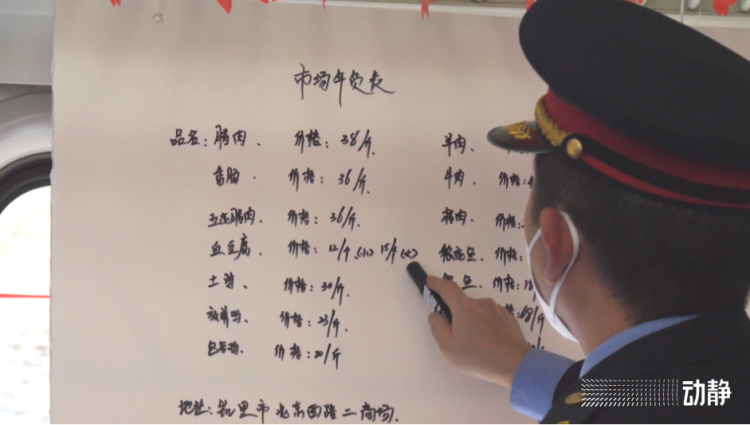 市场年货表
品名：腊肉. 价格：38/斤. 羊肉.
香肠 价格：36/斤. 牛肉. 价格：
五花腊肉. 价格：36/斤. 猪肉. 价格：
血豆腐. 价格：12/斤.(小) 15/斤(大) 稻花鱼. 价格：
土鸡. 价格：30/斤. 鱼. 价格：
放养鸡. 价格：23/斤. 68/斤
价格：20/斤
地址：凯里市北京西路二商场.
动静